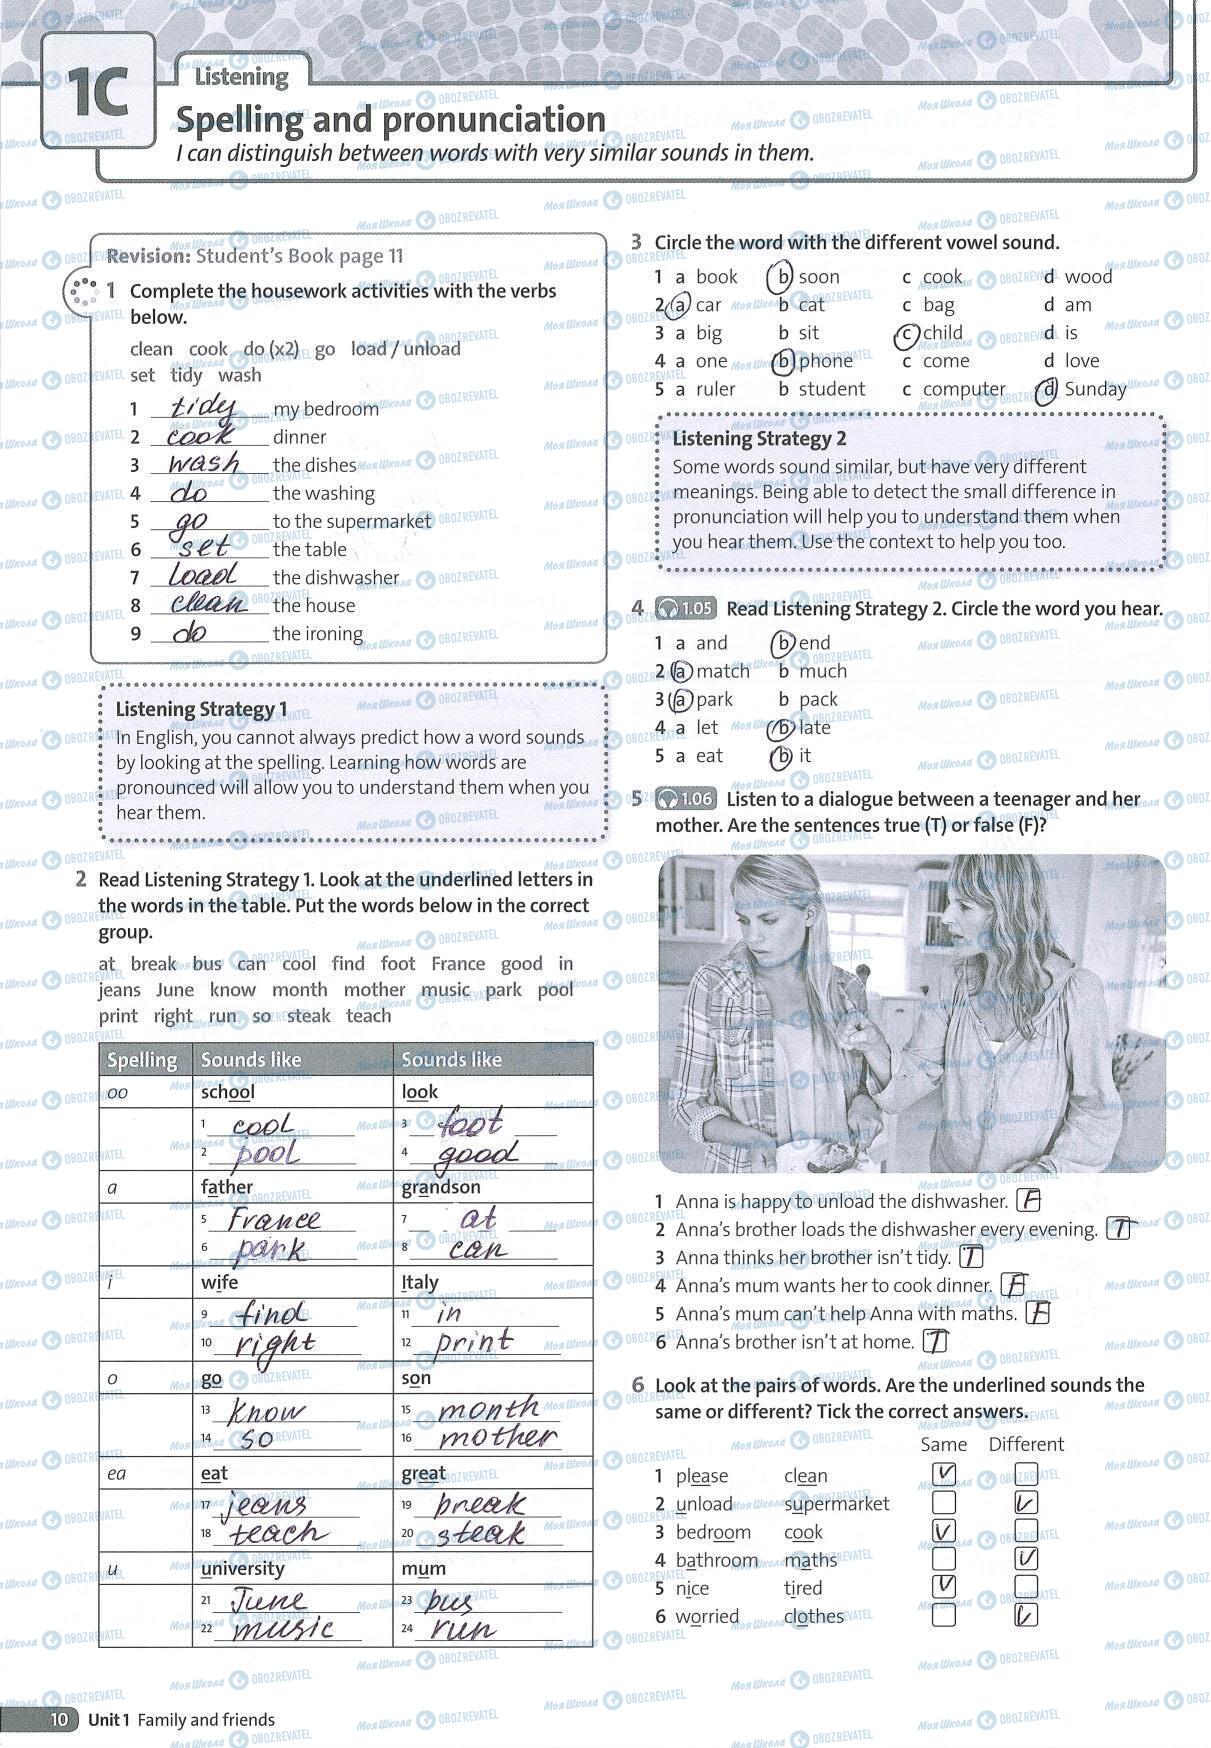 1C
Listening
Spelling and pronunciation
I can distinguish between words with very similar sounds in them.
Revision: Student's Book page 11
1 Complete the housework activities with the verbs
below.
clean cook do (x2) go load / unload
set tidy wash
1 tidy my bedroom
2 cook dinner
3 wash the dishes
4 do the washing
5 go to the supermarket
6 set the table
7 load the dishwasher
8 clean the house
9 do the ironing
Listening Strategy 1
In English, you cannot always predict how a word sounds
by looking at the spelling. Learning how words are
pronounced will allow you to understand them when you
hear them.
2 Read Listening Strategy 1. Look at the underlined letters in
the words in the table. Put the words below in the correct
group.
at break bus can cool find foot France good in
jeans June know month mother music park pool
print right run so steak teach
Spelling Sounds like Sounds like
oo school look
1 cool 3 foot
2 pool 4 good
a father grandson
5 France 7 at
6 park 8 can
i wife Italy
9 find 11 in
10 right 12 print
o go son
13 know 15 month
14 so 16 mother
ea eat great
17 jeans 19 break
18 teach 20 steak
u university mum
21 June 23 bus
22 music 24 run
3 Circle the word with the different vowel sound.
1 a book b soon c cook d wood
2 a car b cat c bag d am
3 a big b sit c child d is
4 a one b phone c come d love
5 a ruler b student c computer d Sunday
Listening Strategy 2
Some words sound similar, but have very different
meanings. Being able to detect the small difference in
pronunciation will help you to understand them when
you hear them. Use the context to help you too.
4 1.05 Read Listening Strategy 2. Circle the word you hear.
1 a and b end
2 a match b much
3 a park b pack
4 a let b late
5 a eat b it
5 1.06 Listen to a dialogue between a teenager and her
mother. Are the sentences true (T) or false (F)?
1 Anna is happy to unload the dishwasher. F
2 Anna's brother loads the dishwasher every evening. T
3 Anna thinks her brother isn't tidy. T
4 Anna's mum wants her to cook dinner. F
5 Anna's mum can't help Anna with maths. F
6 Anna's brother isn't at home. T
6 Look at the pairs of words. Are the underlined sounds the
same or different? Tick the correct answers.
Same Different
1 please clean
2 unload supermarket
3 bedroom cook
4 bathroom maths
5 nice tired
6 worried clothes
10 Unit 1 Family and friends
Моя Школа OBOZREVATEL